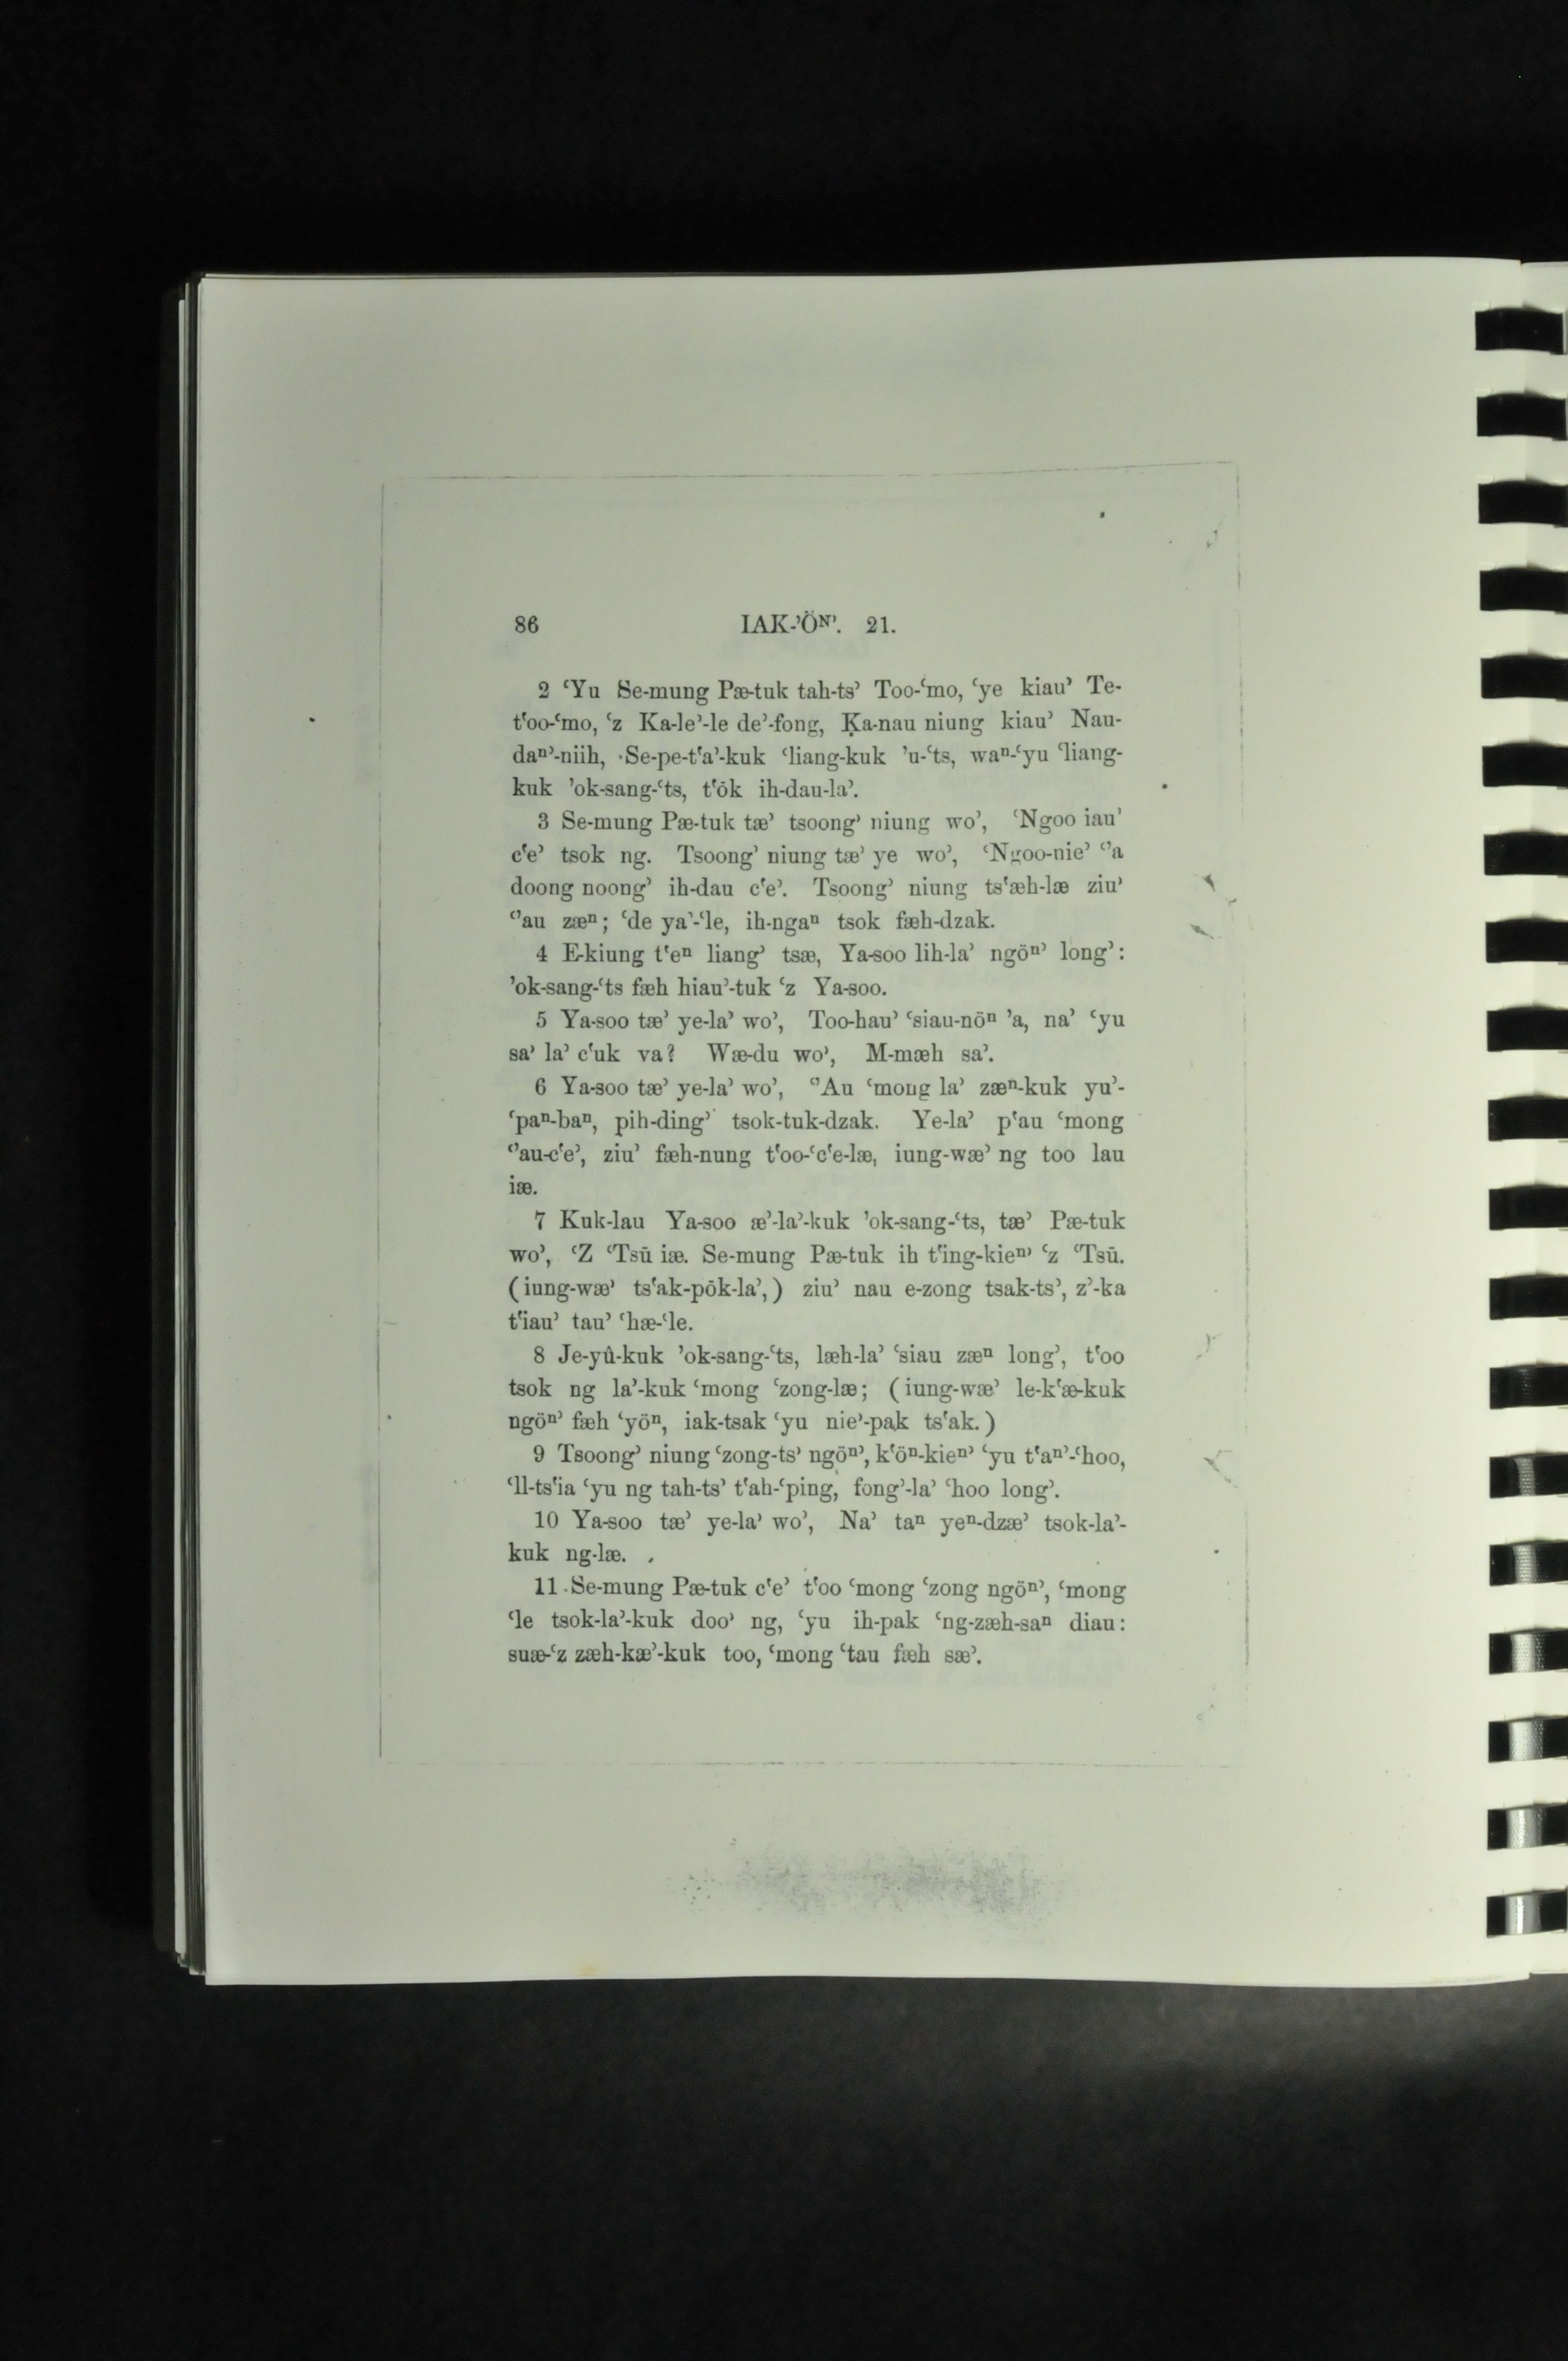 86 IAK-’Öᴺ’. 21.
2 ‘Yu Se-mung Pæ-tuk tah-ts’ Too-‘mo, ‘ye kiau’ Te-
t‘oo-‘mo, ‘z Ka-le’-le de’-fong, Ḳa-nau niung kiau’ Nau-
daⁿ’-niih, Se-pe-t‘a’-kuk ‘liang-kuk ’u-‘ts, waⁿ-‘yu ‘liang-
kuk ’ok-sang-‘ts, t‘ōk ih-dau-la’.
3 Se-mung Pæ-tuk tæ’ tsoong’ niung wo’, ‘Ngoo iau’
c‘e’ tsok ng. Tsoong’ niung tæ’ ye wo’, ‘Ngoo-nie’ ‘’a
doong noong’ ih-dau c‘e’. Tsoong’ niung ts‘æh-læ ziu’
‘’au zæⁿ; ‘de ya’-‘le, ih-ngaⁿ tsok fæh-dzak.
4 E-kiung t‘eⁿ liang’ tsæ, Ya-soo lih-la’ ngöⁿ’ long’:
’ok-sang-‘ts fæh hiau’-tuk ‘z Ya-soo.
5 Ya-soo tæ’ ye-la’ wo’, Too-hau’ ‘siau-nöⁿ ’a, na’ ‘yu
sa’ la’ c‘uk va? Wæ-du wo’, M-mæh sa’.
6 Ya-soo tæ’ ye-la’ wo’, ‘’Au ‘mong la’ zæⁿ-kuk yu’-
‘paⁿ-baⁿ, pih-ding’ tsok-tuk-dzak. Ye-la’ p‘au ‘mong
‘’au-c‘e’, ziu’ fæh-nung t‘oo-‘c‘e-læ, iung-wæ’ ng too lau
iæ.
7 Kuk-lau Ya-soo æ’-la’-kuk ’ok-sang-‘ts, tæ’ Pæ-tuk
wo’, ‘Z ‘Tsū iæ. Se-mung Pæ-tuk ih t‘ing-kieⁿ’ ‘z ‘Tsū.
(iung-wæ’ ts‘ak-pōk-la’,) ziu’ nau e-zong tsak-ts’, z’-ka
t‘iau’ tau’ ‘hæ-‘le.
8 Je-yû-kuk ’ok-sang-‘ts, læh-la’ ‘siau zæⁿ long’, t‘oo
tsok ng la’-kuk ‘mong ‘zong-læ; (iung-wæ’ le-k‘æ-kuk
ngöⁿ’ fæh ‘yöⁿ, iak-tsak ‘yu nie’-pak ts‘ak.)
9 Tsoong’ niung ‘zong-ts’ ngöⁿ’, k‘öⁿ-kieⁿ’ ‘yu t‘aⁿ’-‘hoo,
‘ll-ts‘ia ‘yu ng tah-ts’ t‘ah-‘ping, fong’-la’ ‘hoo long’.
10 Ya-soo tæ’ ye-la’ wo’, Na’ taⁿ yeⁿ-dzæ’ tsok-la’-
kuk ng-læ.
11 Se-mung Pæ-tuk c‘e’ t‘oo ‘mong ‘zong ngöⁿ’, ‘mong
‘le tsok-la’-kuk doo’ ng, ‘yu ih-pak ‘ng-zæh-saⁿ diau:
suæ-‘z zæh-kæ’-kuk too, ‘mong ‘tau fæh sæ’.